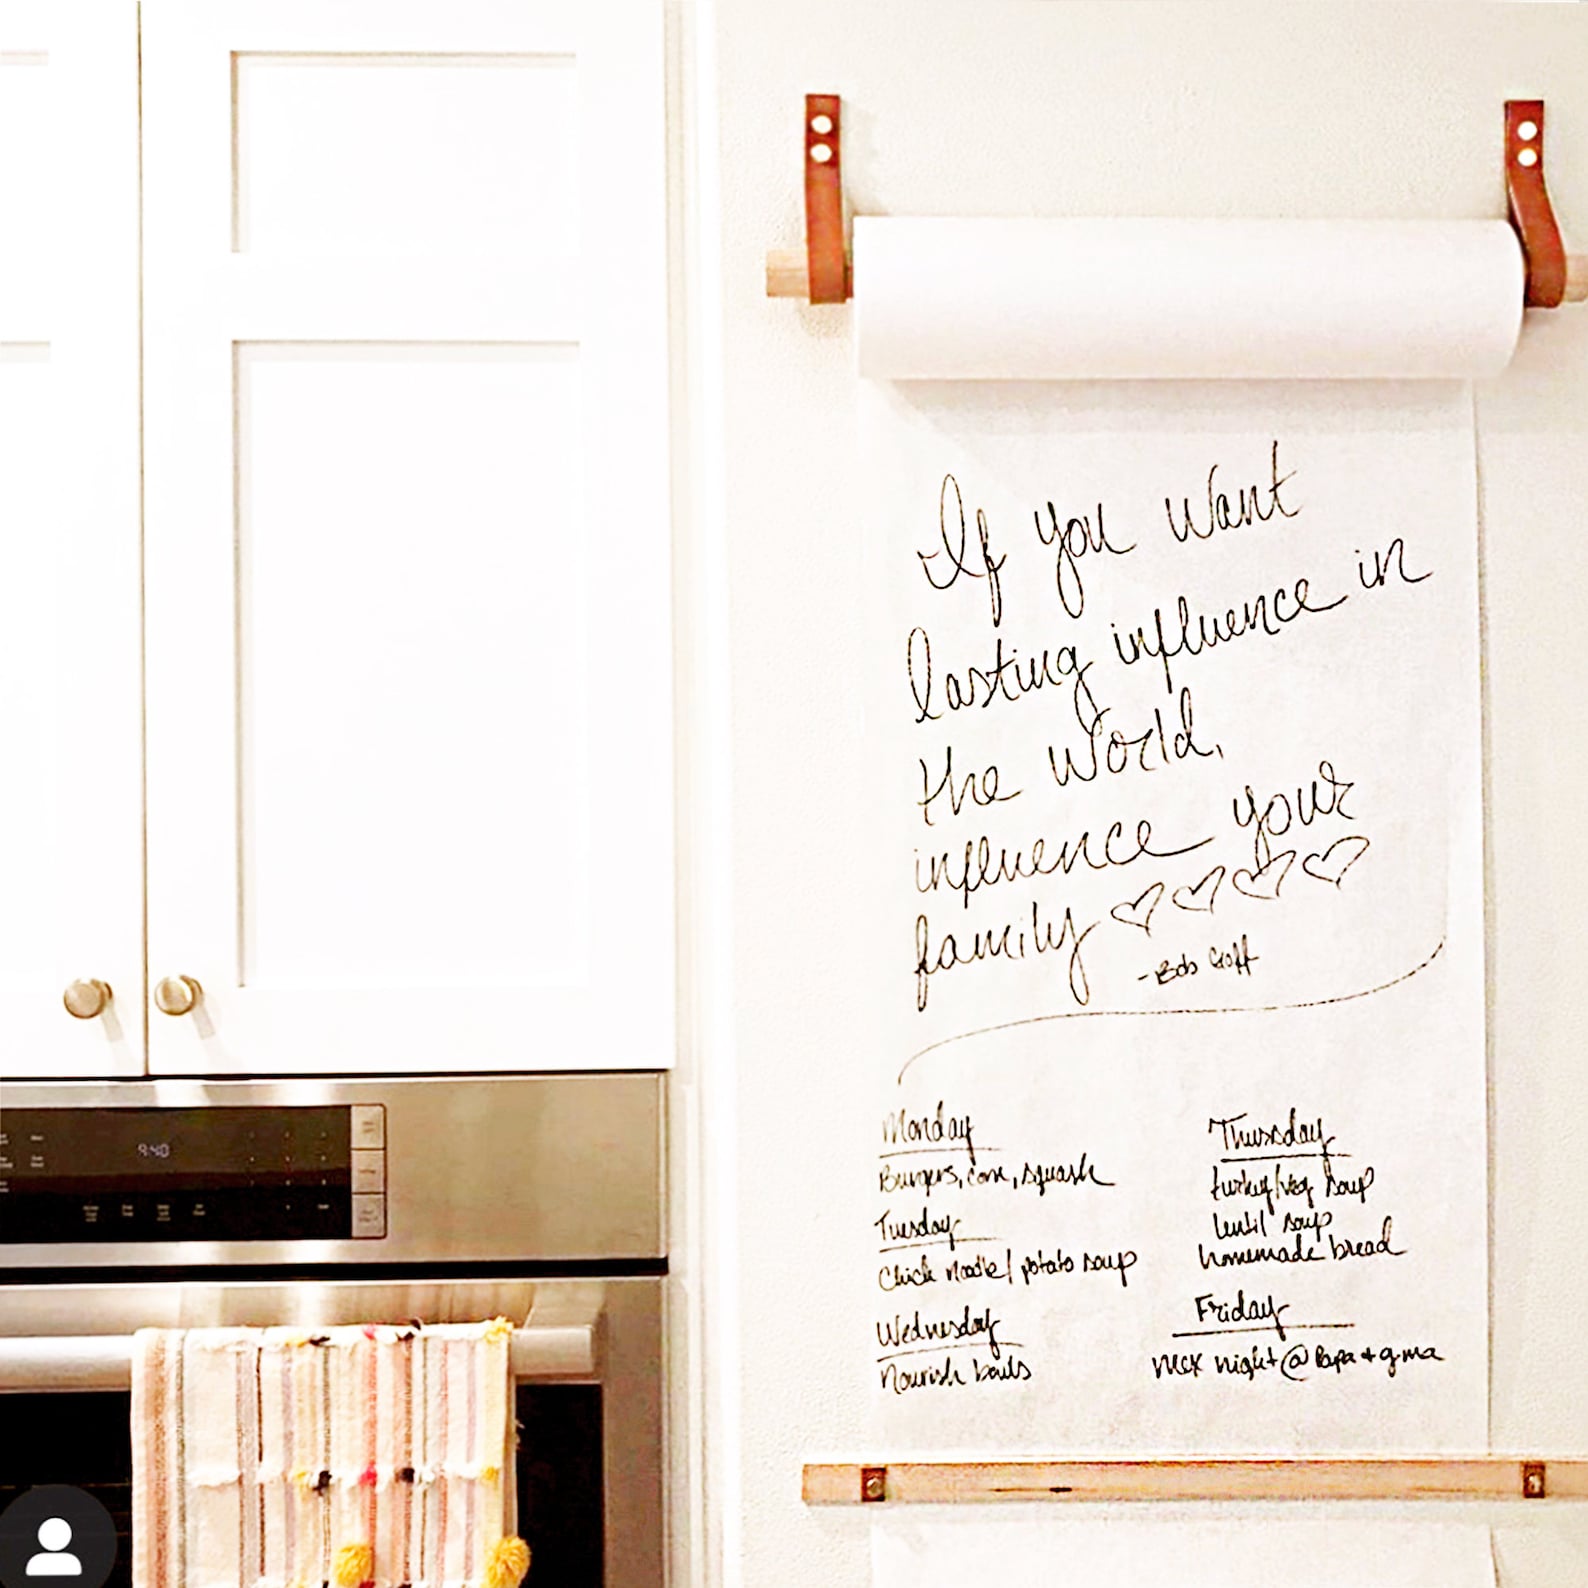 If you want
lasting influence in
the world,
influence your
family
-Bob Goff
Monday
Burgers, corn, squash
Tuesday
Chick noodle/potato soup
Wednesday
Nourish bowls
Thursday
turkey/veg soup
lentil soup
homemade bread
Friday
mex night @ Papa + gma
9:40